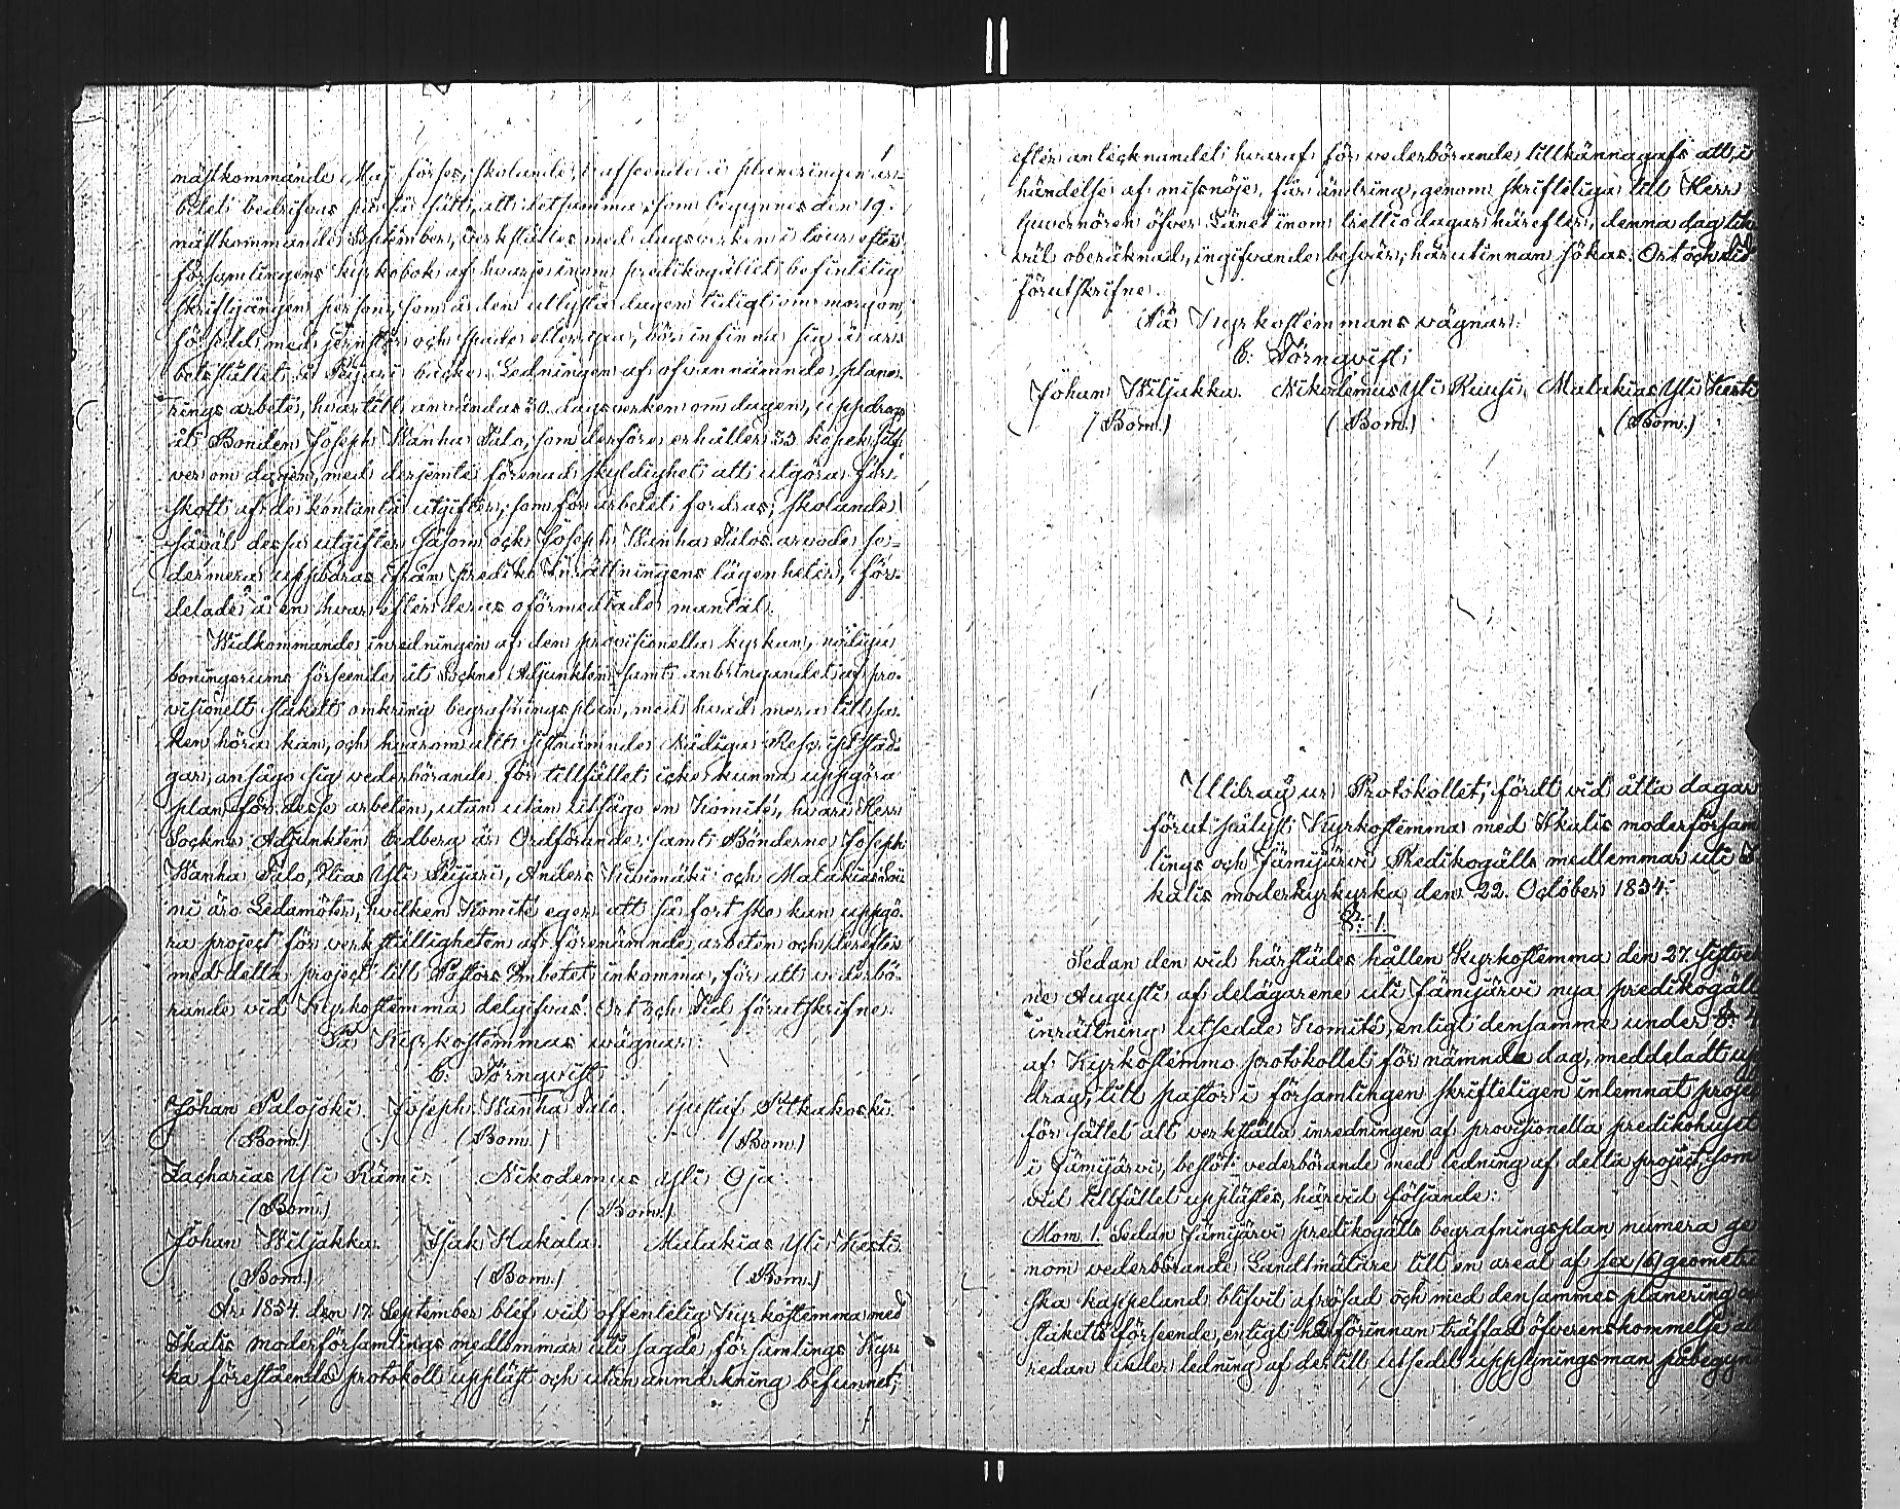 nästkommande Maj förses, skolande, i afseende å planeringen ar-
betet bedrifvas på så sätt, att detsamma, som begynnes den 19.
nästkommande September, verkställes med dagsverken i tour efter
församlingens kyrkobok af hvarje inom predikogället befintelig
skriftgången person, som å den utlysta dagen tidigt om morgon,
försedd med jernstör och spade eller yxa, bör infinna sig å ar-
betsstället å Peijari backe. Ledningen af ofvannämnde plane-
rings arbete, hvartill användas 30. dagsverken om dagen, uppdrogs
åt Bonden Joseph Wanha Talo, som derföre erhåller 35 kopek silf-
ver om dagen, med derjemte förenad skyldighet att utgöra för-
skott af de kontanta utgifter, som för arbetet fordras, skolande
såväl dessa utgifter såsom ock Joseph Wanha Talos arvode se-
dermera uppbäras ifrån prediko Inrättningens lägenheter, för-
delade å en hvar efter deras oförmedlade mantal.
Widkommande inredningen af den provisionella kyrkan, nödiga
boningsrums förseende åt Sockne Adjunkten samt anbringandet af pro-
visionelt staket omkring begrafningsplan, med hvad mera till sa-
ken höra kan, och hvarom allt sistnämnde Nådiga Rescript stad-
gar, ansågo sig vederbörande för tillfället icke kunna uppgöra
plan för desse arbeten, utan utan utsågo en Komité, hvari Herr
Sockne Adjunkten Eedberg är Ordförande samt Bönderne Joseph
Wanha Talo, Elias Yli Peijari, Anders Kiwimäki och Malakias
ni äro Ledamöter, hvilken Komité eger att så fort ske kan uppgö-
ra project för verkställigheten af förenämnde arbeten och derefter
med detta project till Pastors Embetet inkomma, för att vederbö-
rande vid Kyrkostemma delgifvas. Ort och Tid förutskrifne.
På Kyrkostemmas wägnar:
C: Törnqvist
Johan Palojoki. Joseph Wanha Talo. Gustaf Pitkakoski.
(Bom.) (Bom.) (Bom.)
Zacharias Yli Rämi. Nikodemus Yli Oja.
(Bom.) (Bom.)
Johan Wiljakka. Isak Hakala. Malakias Yli Kesti.
(Bom.) (Bom.) (Bom.)
År 1854. den 17. September blef vid offentelig Kyrkostemma med
Ikalis moderförsamlings medlemmar uti sagde församlings Kyr-
ka förestående protokoll uppläst och utan anmärkning befunnet,
efter antecknandet hvaraf för vederbörande tillkännagafs att, i
händelse af missnöje, får ändring, genom skrifteliga till Herr
Guvernören öfver Länet inom trettio dagar härefter, denna dag lik-
väl oberäknad, ingifvande besvär, härutinnan sökas. Ort och tid
förutskrifne.
På Kyrkostemmans wägnar:
C: Törnqvist
Johan Wiljakka. Nikodemus Yli Ruusi. Malakias Yli Kesti
(Bom.) (Bom.) (Bom.)
Utdrag ur Protokollet, fördt vid åtta dagar
förut pålyst Kyrkostemma med Ikalis moderförsam
lings och Jämijärvi Predikogälls medlemmar uti I
kalis moderkyrkyrka den 22. October 1854.
§: 1.
Sedan den vid härstädes hållen Kyrkostemma den 27. sistvek
ne Augusti af delägarene uti Jämijärvi nya predikogäll
inrättning utsedde Komité, enligt densamme under §: 4
af Kyrkostemmo protokollet för nämnde dag, meddeladt up
drag, till pastor i församlingen skrifteligen inlemnat projec
för sättet att verkställa inredningen af provisionella predikohuset
i Jämijärvi, beslöt vederbörande med ledning af detta project, som
vid tillfället upplästes, härvid följande:
Mom. 1. Sedan Jämijärvi predikogälls begrafningsplan numera ge
nom vederbörande Landtmätare till en areal af sex (6) geometri
ska kappeland blifvit afrösad och med densammes planering oc
staketts förseende, enligt härförinnan träffad öfverenskommelse al
redan under ledning af dertill utsedd uppsyningsman påbegyn